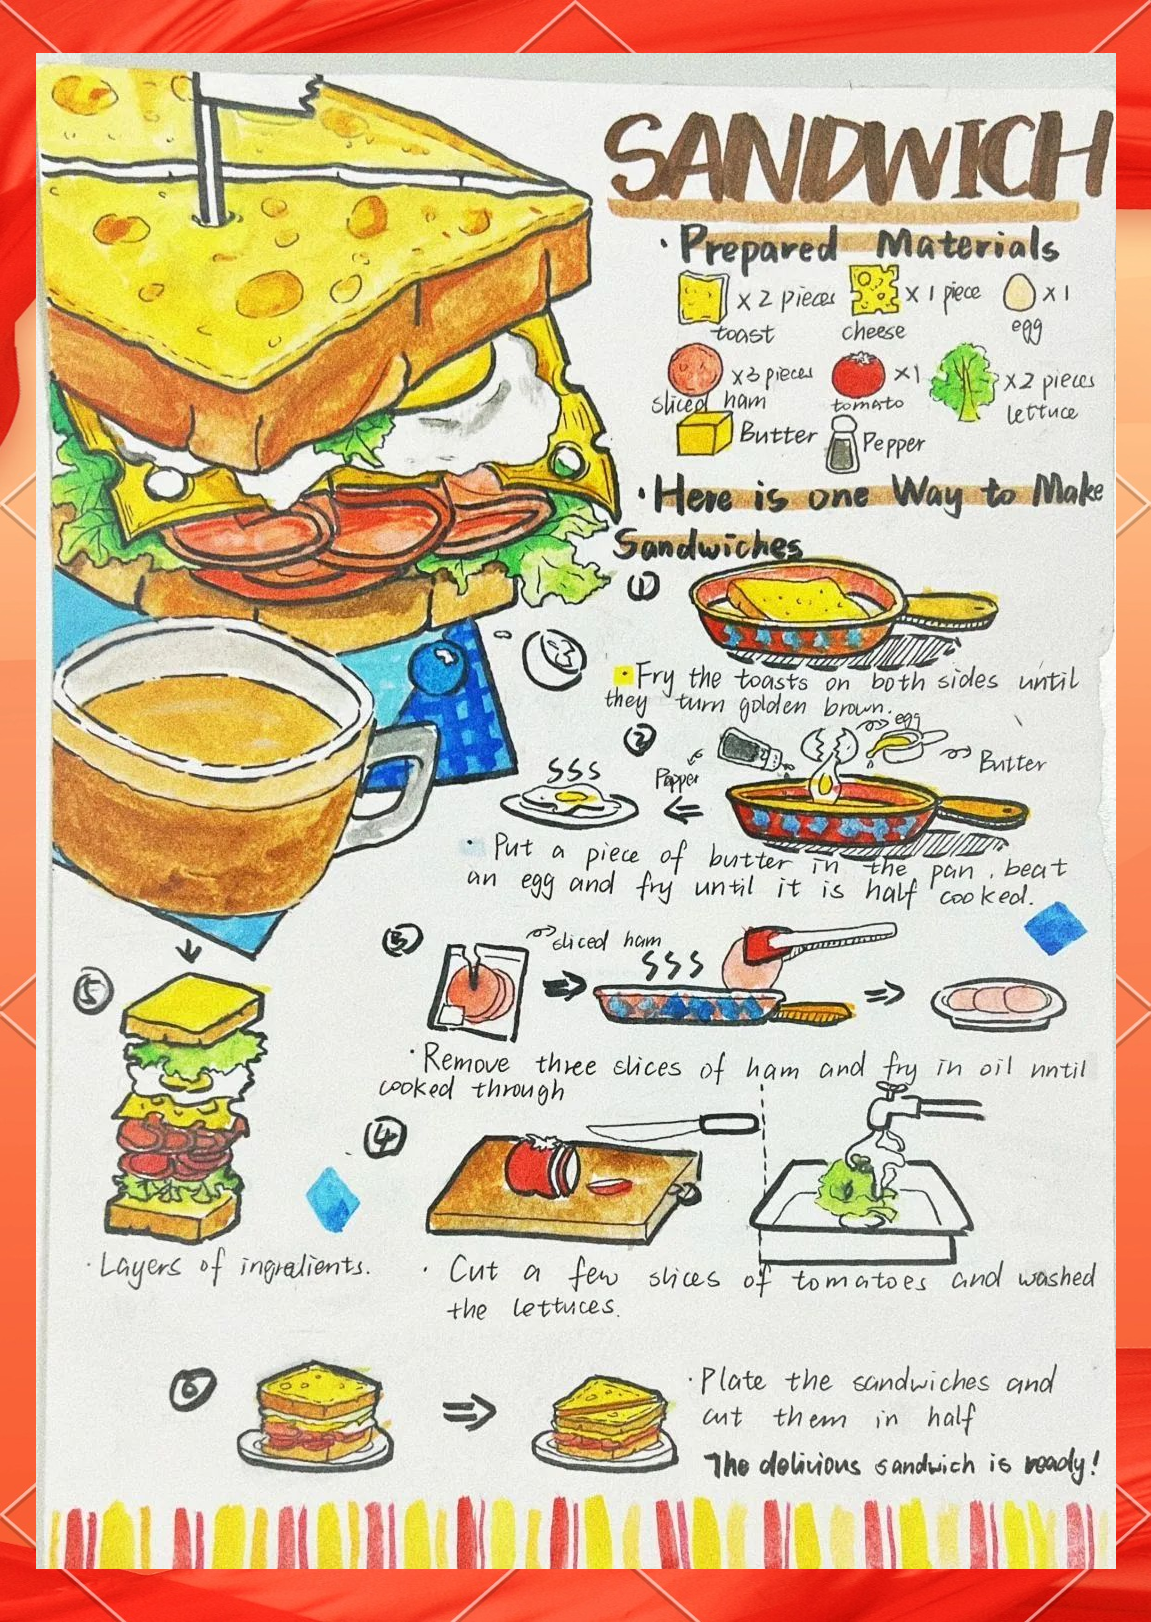 SANDWICH
· Prepared Materials
x 2 pieces
toast
x 1 piece
cheese
x 1
egg
x3 pieces
sliced ham
x1
tomato
x2 pieces
lettuce
Butter
Pepper
· Here is one Way to Make
Sandwiches
①
· Fry the toasts on both sides until
they turn golden brown.
②
Pepper
egg
Butter
· Put a piece of butter in the pan, beat
an egg and fry until it is half cooked.
③
sliced ham
· Remove three slices of ham and fry in oil nntil
cooked through
④
· Cut a few slices of tomatoes and washed
the lettuces.
⑤
· Layers of ingredients.
⑥
· Plate the sandwiches and
cut them in half
The delicious sandwich is ready!